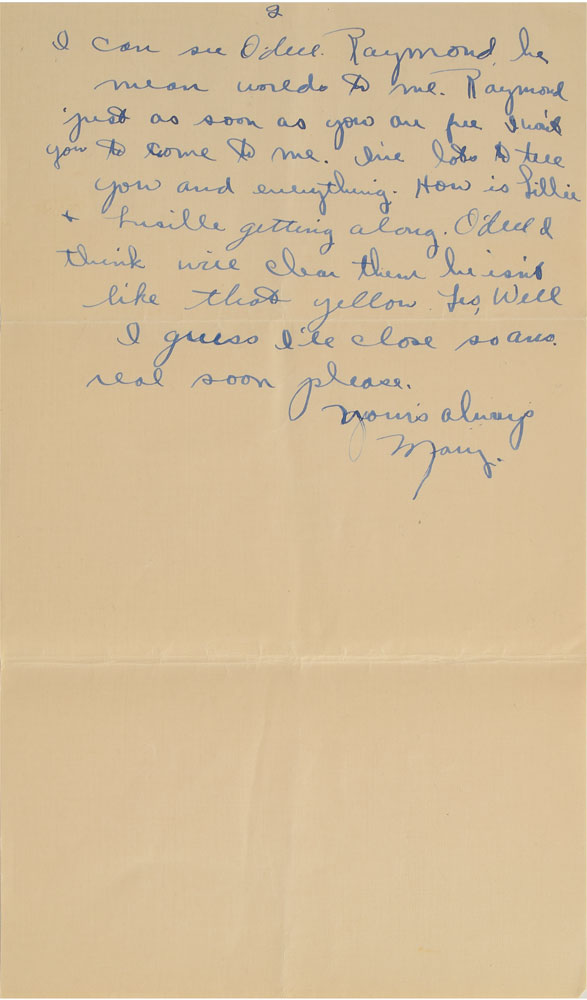 2
I can see Odell. Raymond, he
mean worlds to me. Raymond
just as soon as you are free I want
you to come to me. I've lots to tell
you and everything. How is Lillie
+ Lucille getting along. Odell I
think will clear them he isn't
like that yellow Les, Well
I guess I'll close so ans.
real soon please.
Yours always
Mary.